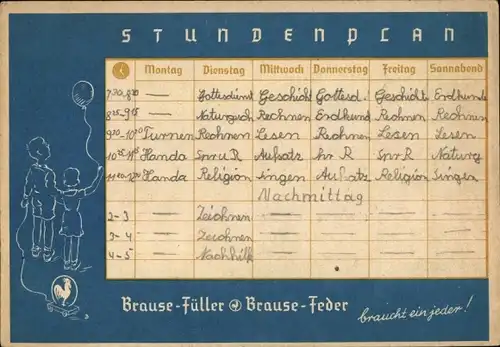 STUNDENPLAN
Montag Dienstag Mittwoch Donnerstag Freitag Sonnabend
— Gottesdienst Geschicht Gottesd. Geschicht Erdkunde
— Naturgesch Rechnen Erdkund Rechnen Rechnen
Turnen Rechnen Lesen Rechnen Lesen Lesen
Handa Spr u R Aufsatz R Spr R Naturg
Handa Religion Singen Aufsatz Religion Singen
Nachmittag
2-3 — Zeichnen — — — —
3-4 — Zeichnen — — — —
4-5 — Nachhilfe — — — —
Brause-Füller Brause-Feder
braucht ein jeder!